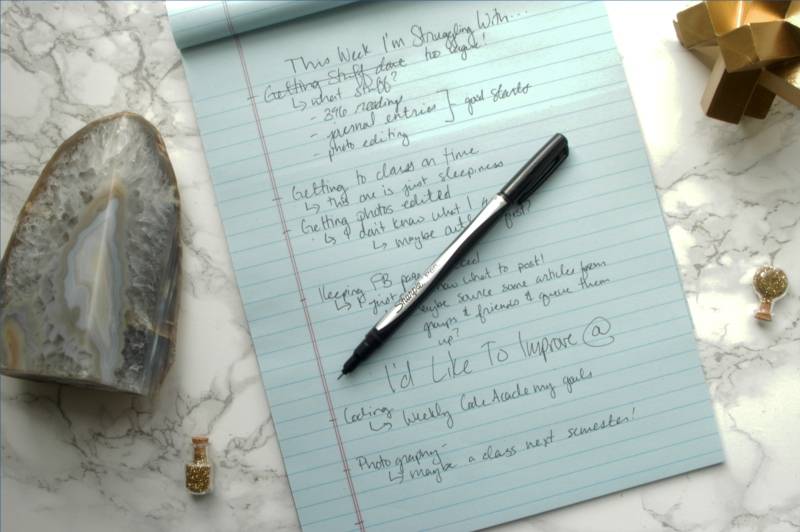 This Week I'm Struggling With...
Getting Stuff done too vague!
↳ what stuff?
- 396 readings
- journal entries ] good starts
- photo editing
Getting to class on time
↳ this one is just sleepiness
Getting photos edited
↳ I don't know what I
↳ maybe first?
Keeping FB
↳ I just know what to post!
maybe source some articles from
groups & friends & queue them
up?
Sharpie PEN
I'd Like To Improve @
Coding
↳ Weekly CodeAcademy goals
Photography-
↳ maybe a class next semester!